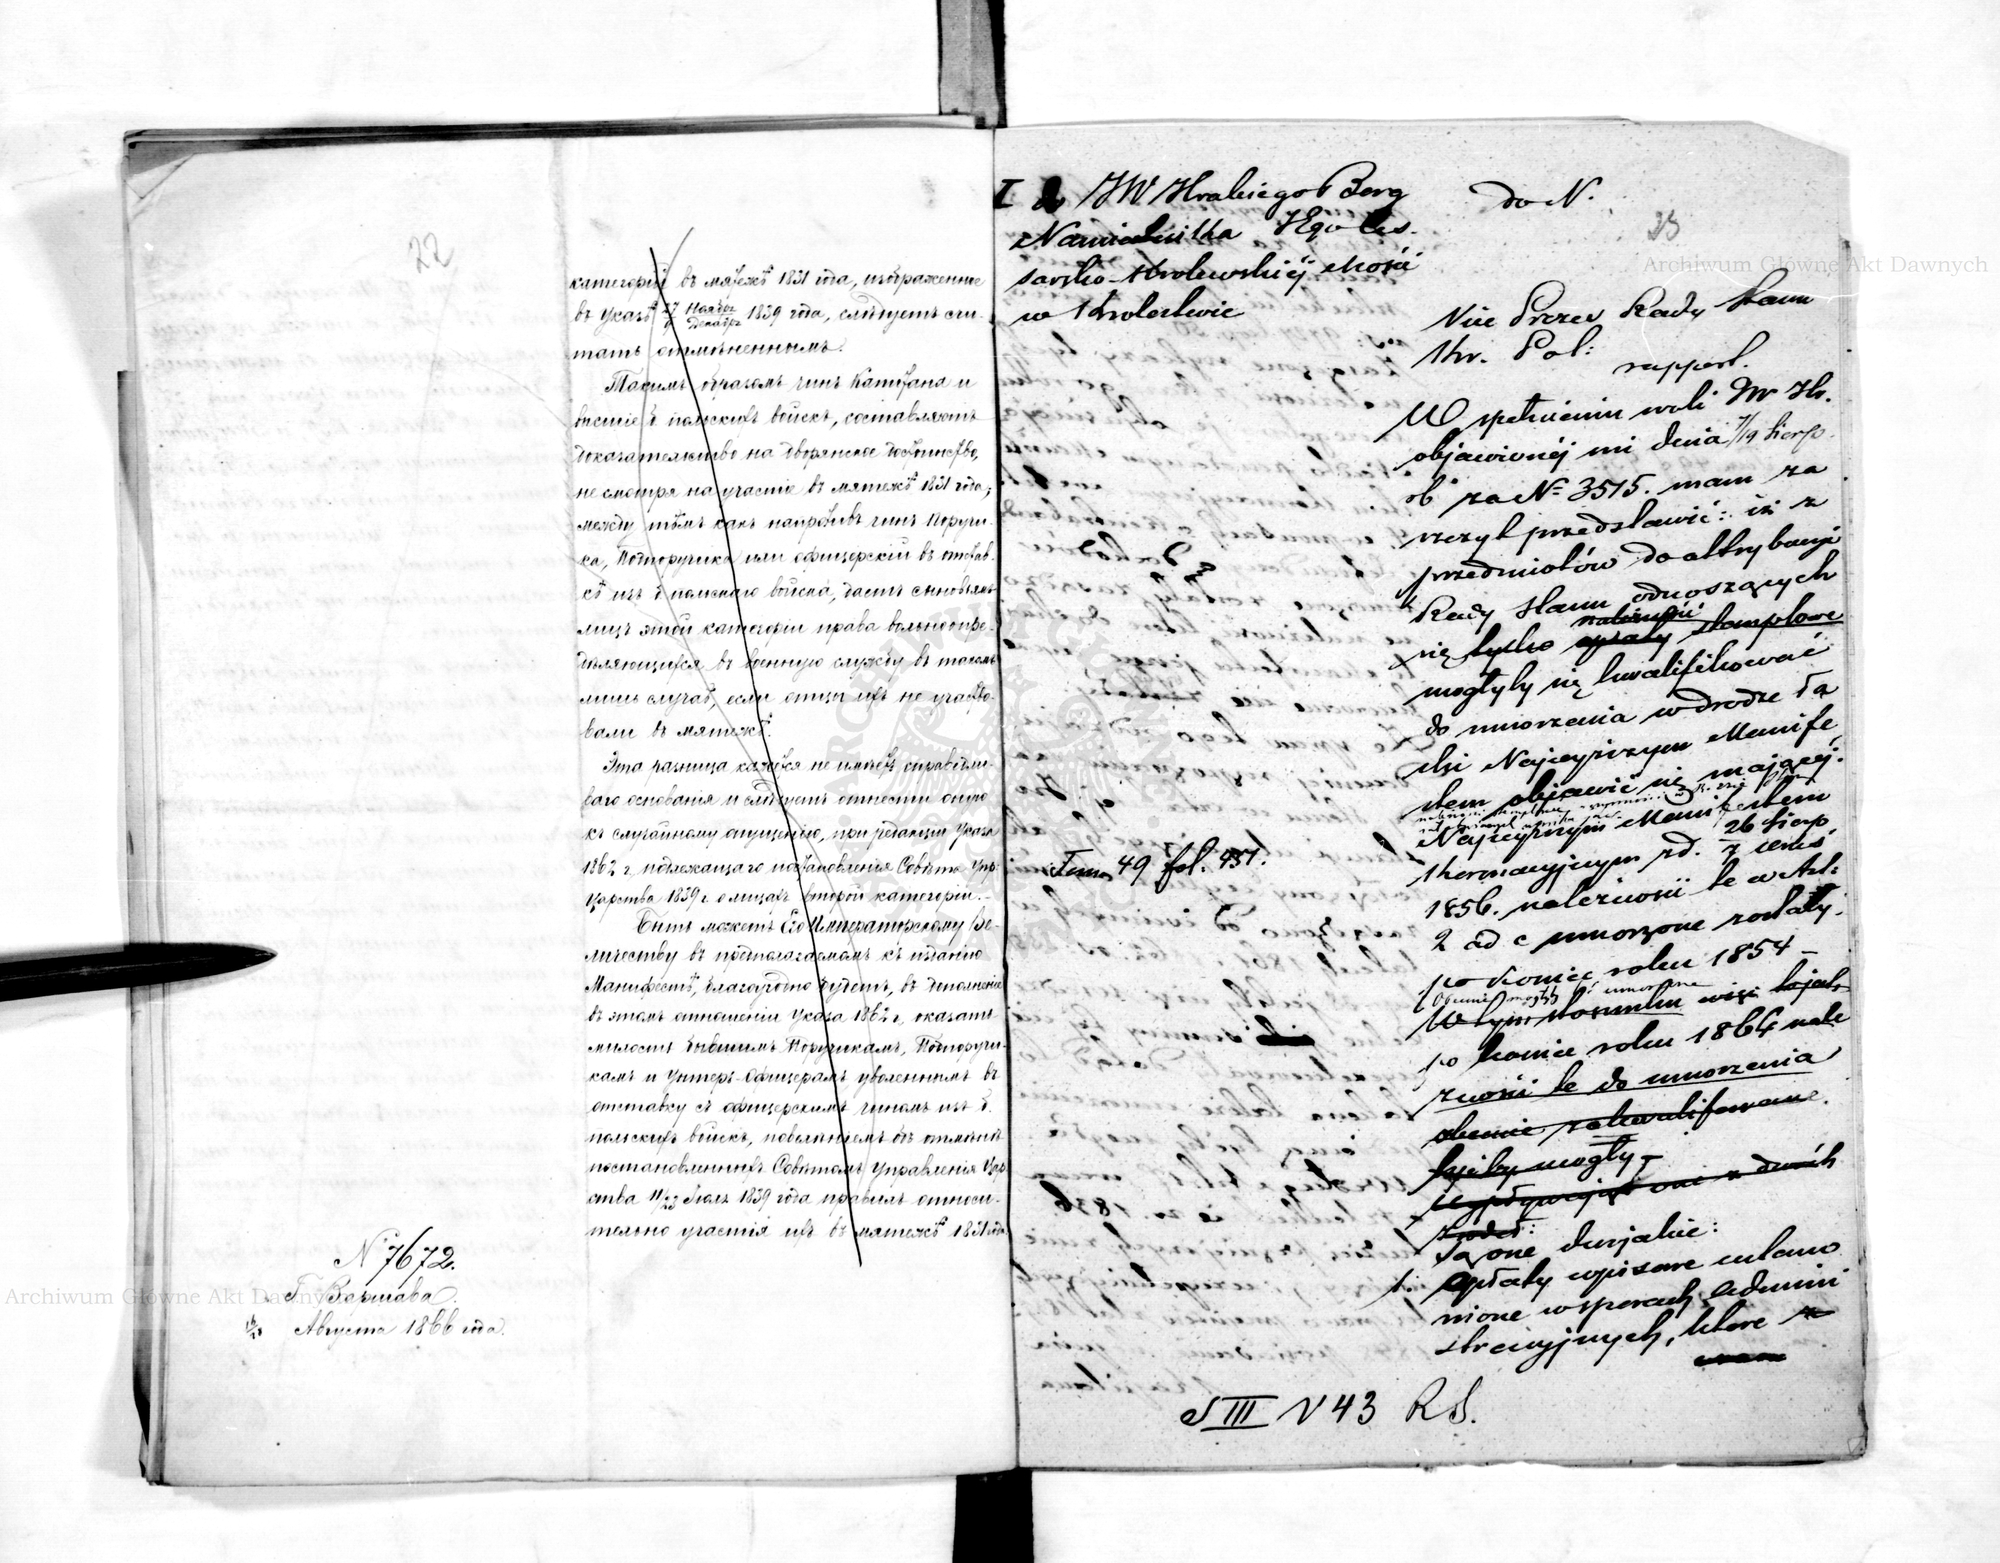 22
категорій въ мятежѣ 1831 года, изображенное
въ Указѣ 27 Ноября / 9 Декабря 1839 года, слѣдуетъ счи-
тать отмѣненнымъ.
Такимъ образомъ чинъ Капитана и
высшіе б. польскихъ войскъ, составляютъ
доказательство на дворянское достоинство,
не смотря на участіе въ мятежѣ 1831 года;
между тѣмъ какъ напротивъ чинъ Поручи-
ка, Подпоручика или офицерскій въ отстав-
кѣ изъ б. польскаго войска, даетъ сыновьямъ
лицъ этой категоріи права вольноопре-
дѣляющихся въ военную службу въ такомъ
лишь случаѣ, если отцы ихъ не участво-
вали въ мятежѣ.
Эта разница кажется не имѣетъ справедли-
ваго основанія и слѣдуетъ отнести оную
къ случайному опущенію, при редакціи Указа
1862 г. подлежащаго постановленія Совѣта Упр.
Царства 1839 г. о лицахъ второй категоріи.
Быть можетъ Его Императорскому Ве-
личеству въ предполагаемомъ къ изданію
Манифестѣ, благоугодно будетъ, въ дополненіе
въ этомъ отношеніи Указа 1862 г., оказать
милость бывшимъ Поручикамъ, Подпоручи-
камъ и Унтеръ-Офицерамъ уволеннымъ въ
отставку съ офицерскимъ чиномъ изъ б.
польскихъ войскъ, повелѣніемъ объ отмѣнѣ
постановленныхъ Совѣтомъ Управленія Цар
ства 11/23 Іюля 1839 года правилъ относи-
тельно участія ихъ въ мятежѣ 1831 года.
N 7672.
Г. Варшава.
Августа 1866 года.
I do JW Hrabiego Berg
Namiestnika JEgo Ces.
sarsko-Królewskiéj Mości
w Królestwie
do N.
23
Vice Prezes Rady Stanu
Kr. Pol:
rapport.
W spełnieniu woli JW Hr.
objawionéj mi dnia 7/19 Sierp.
rb za N= 3515. mam za
szczyt przedstawić: iż z
przedmiotów do attrybucyi
Rady Stanu odnoszących
się tylko opłaty należności stemplowe
mogłyby się kwalifikować
do umorzenia w drodze ła
ski Najwyższym Manife
stem objawić się mającéj.
Najwyższym Manifestem
Koronacyjnym z d. 26 Sierp / 7 Wrześ
1856. należności te w Art:
2 ad c umorzone zostały
po koniec roku 1854 –
Obecnie mogłyby umorzone
W tym stosunku więc
po koniec roku 1864 nale
żności te do umorzenia
obecnie zakwalifikowane
byćby mogły –
Wypływają one z dwóch
źródeł:
Są one dwojakie:
1. Opłaty wpisowe ustano
wione w sporach admini
stracyjnych, które
Tom 49 fol. 451.
S III N 43 R S.
Archiwum Główne Akt Dawnych
Archiwum Główne Akt Dawnych